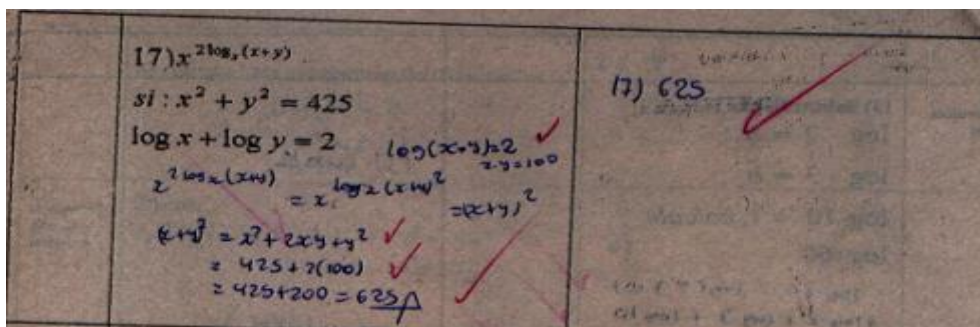 17) x^{2 log_x (x+y)}
si : x² + y² = 425
log x + log y = 2
log(x·y)=2
x·y=100
x^{2 log x (x+y)} = x^{log x (x+y)²} = (x+y)²
(x+y)² = x² + 2xy + y²
= 425 + 2(100)
= 425 + 200 = 625
17) 625